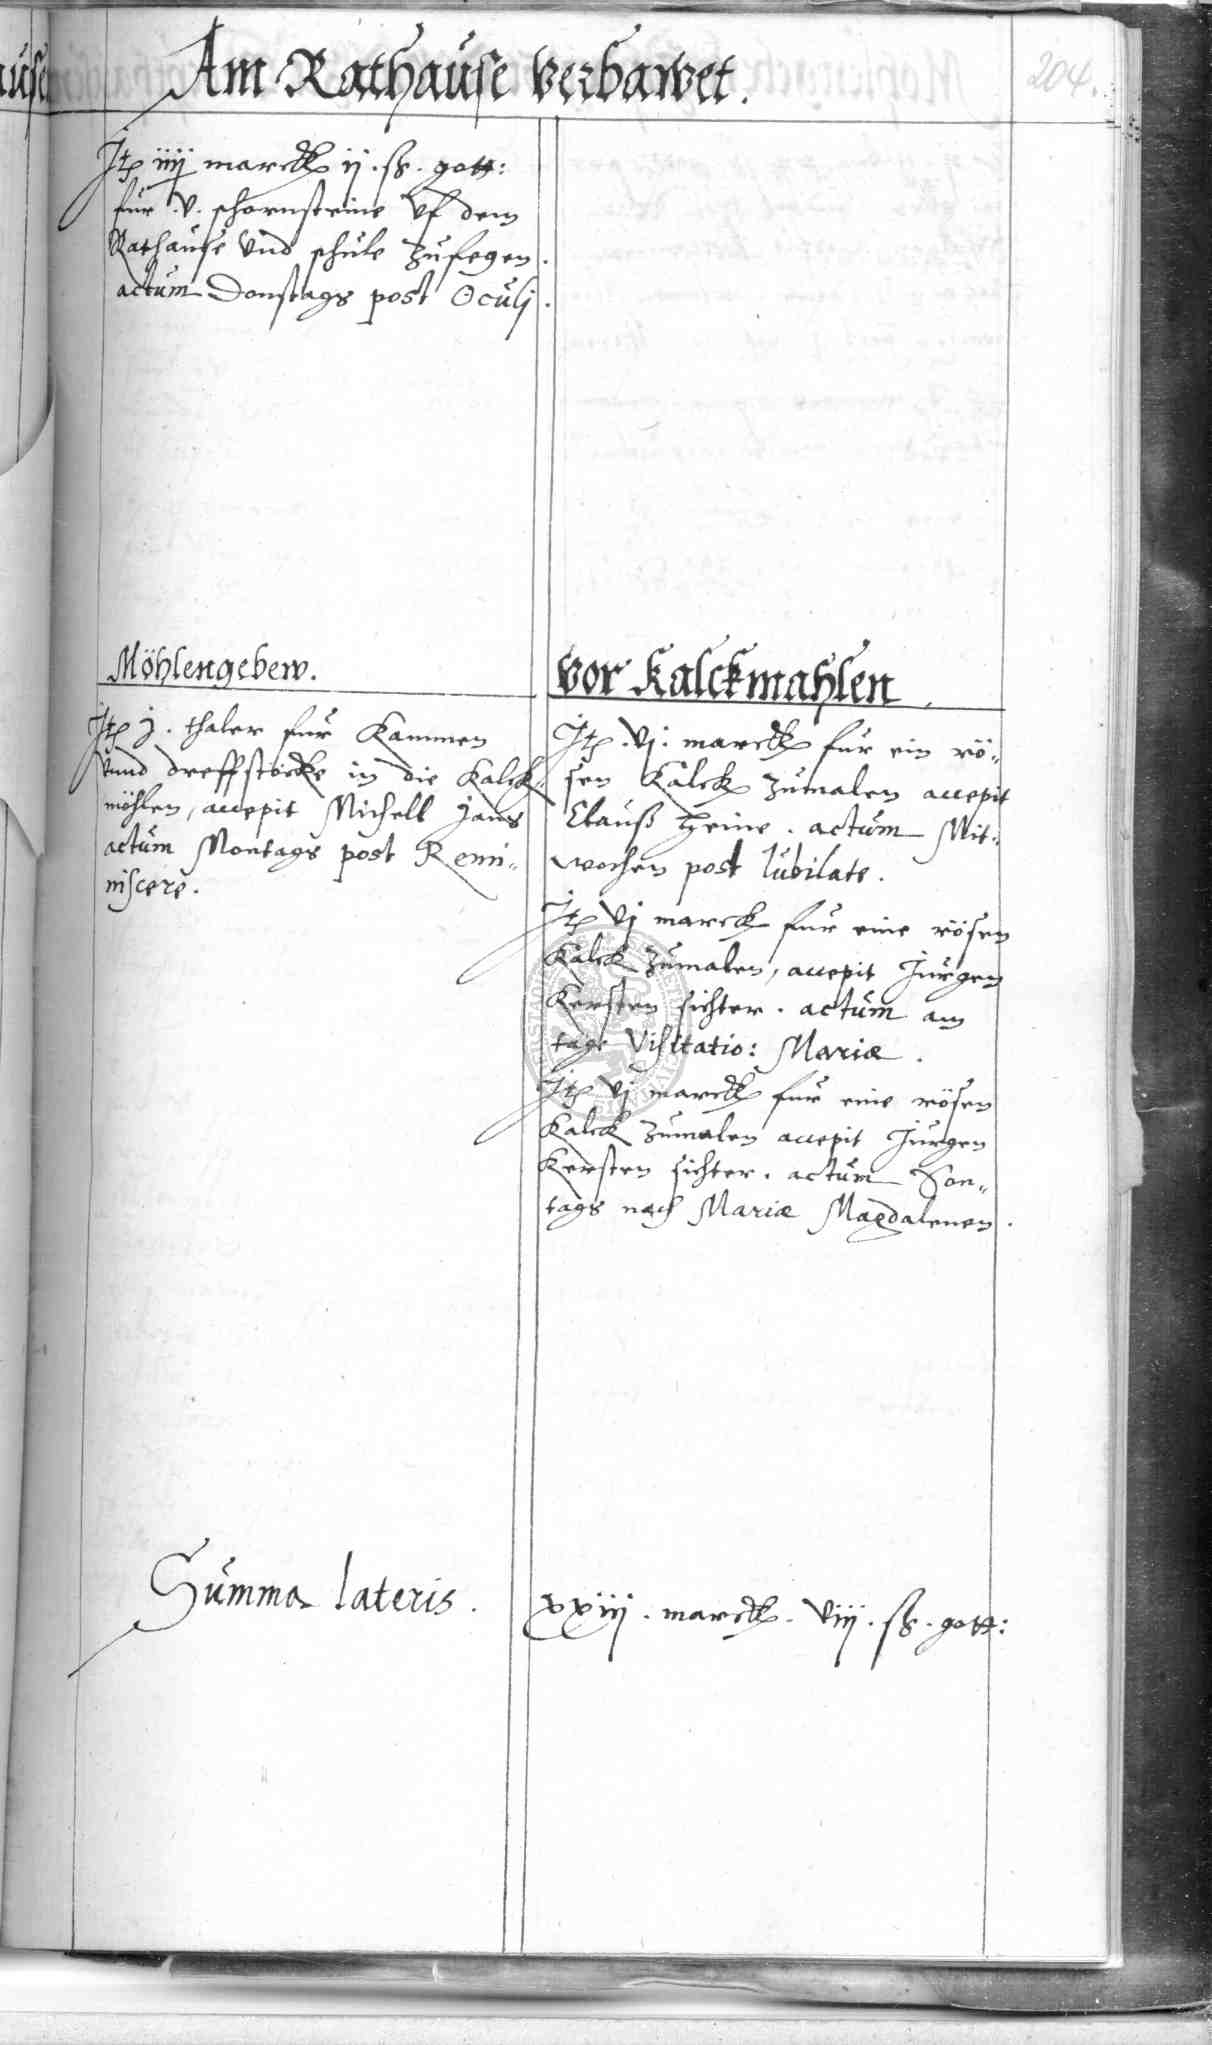 Am Rathause verbawet.
204.
Jtem iiij marck ij. ß. gott:
fur .v. schornsteine vf dem
Rathause vnd schule zufegen.
actum Donstags post Oculj.
Möhlengebew.
Jtem j. thaler fur Kammen
vnnd dreffstöcke in die Kalck-
möhlen, accepit Michell Jans
actum Montags post Remi-
niscere.
vor Kalckmahlen
Jtem .vj. marck fur ein rö-
sen Kalck zumalen accepit
Clauß Heine. actum Mit-
wochen post Iubilate.
Jtem vj marck fur eine rösen
Kalck zumalen, accepit Jurgen
Kersten sichter. actum am
tage Visitatio: Mariæ.
Jtem vj marck fur eine rösen
Kalck zumalen accepit Jurgen
Kersten sichter. actum Son-
tags nach Mariæ Magdalenen.
Summa lateris.
xxiij. marck. viij. ß. gott: